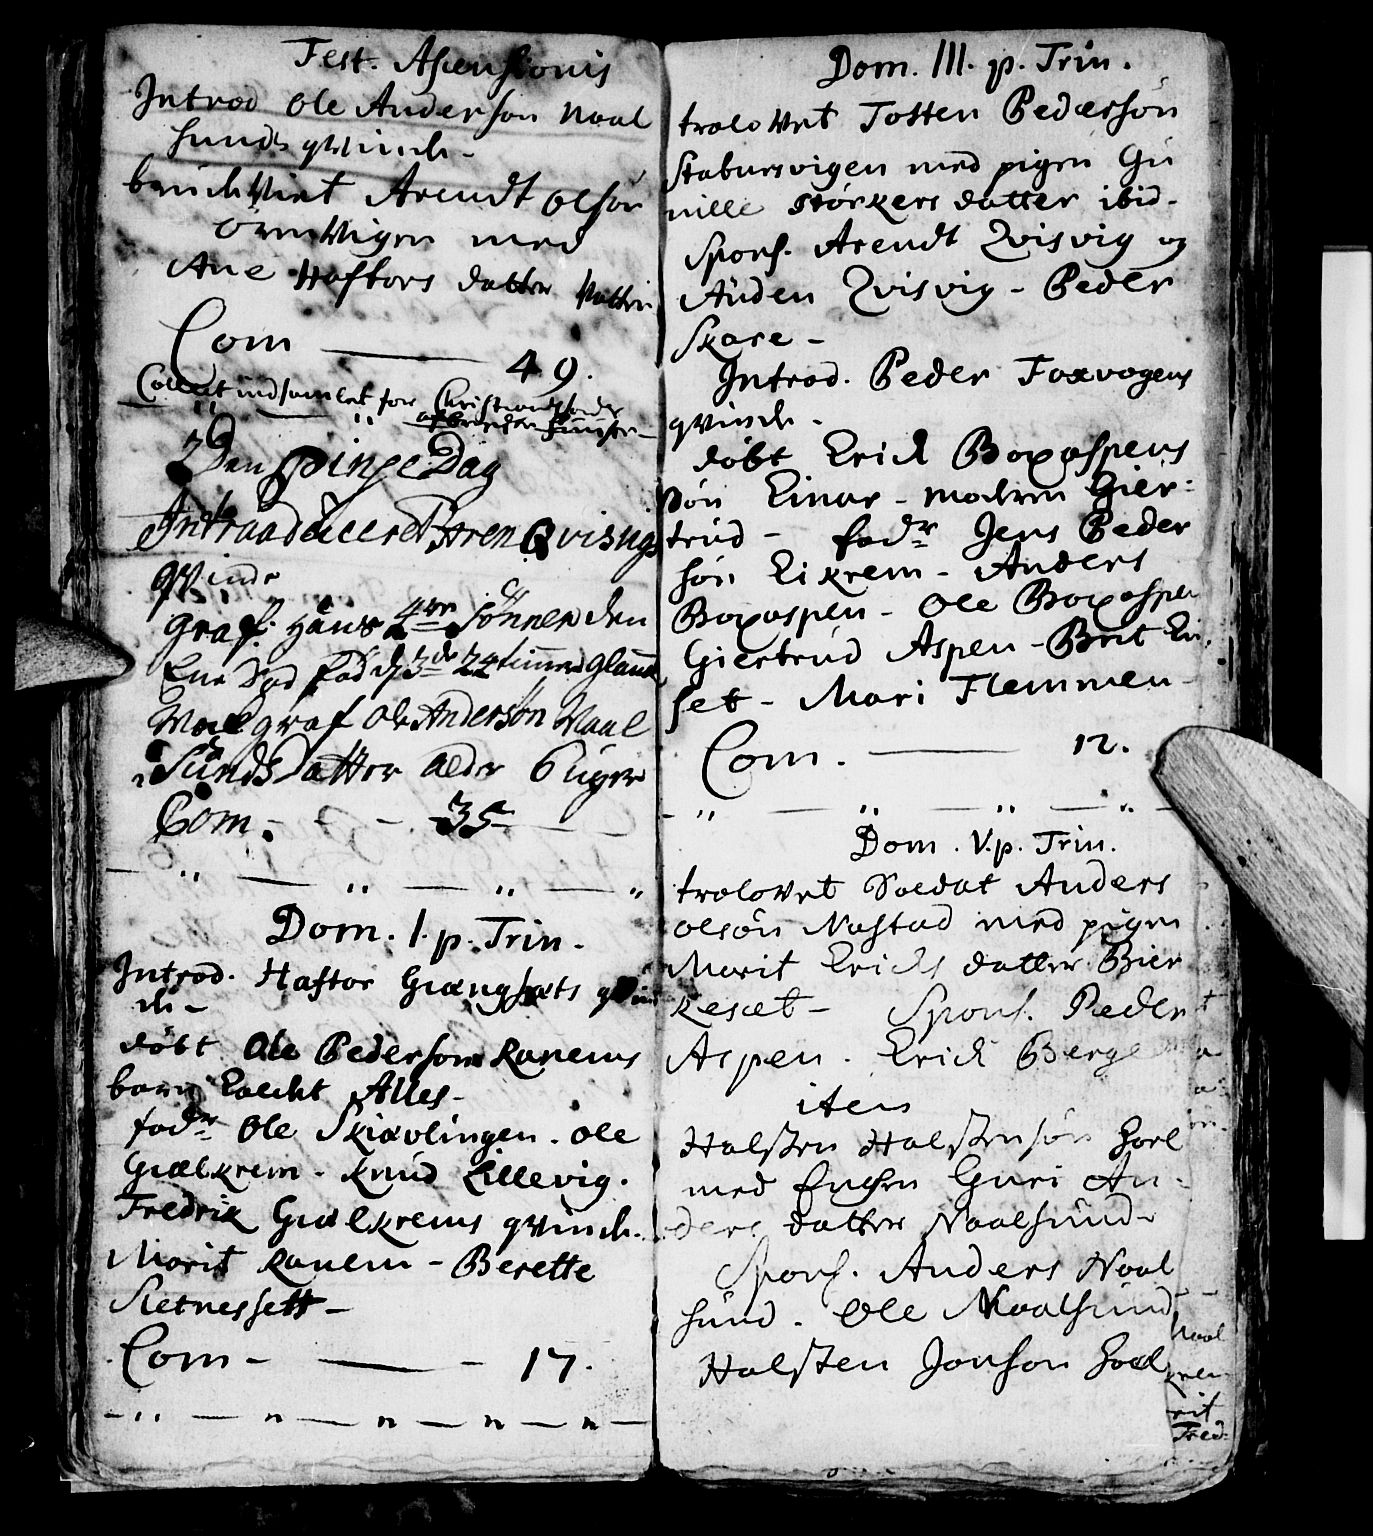 Fest. Ascensionis
Introd Ole Anderson Naal
sunds qvinde -
brudeViet Arendt Olsøn
ørneVigen med
Ane Haftors datter
Com — 49.
Collect indsamlet for Christiansfe
Den Pinse Dag
Intraduceret Qvisvigs
qvinde
Graf. Hans Sønner den
Ene 24 timer
graf Ole Andersøn Naal
Sunds Datter alder 6 uger
Com. - - - 35 -
Dom. I. p. Trin.
Introd. Haftor Giængsæts qvin
de -
døbt Ole Pedersøn Ranems
barn kaldt Alles -
fadr Ole Skiavlingen. Ole
Giælkrem - Knud Lillevig.
Fredrik Giælkrems qvinde.
Marit Ranem - Berette
Sletnessett -
Com - — - 17.
Dom. III. p. Trin.
trolovet Tosten Pedersøn
Stabursvigen med pigen Gu
nille Størkers datter ibid.
Spons. Arendt Qvisvig og
Auden Qvisvig - Peder
Skare -
Introd. Peder Foxvogens
qvinde -
døbt Erich Boxaspens
søn Einar - modren Gier-
trud - fadr Jens Peder
søn Eikrem - Anders
Boxaspen - Ole Boxaspen
Giertrud Aspen - Brit Ei
set - Mari Flemmen -
Com. — 12.
Dom. V. p. Trin.
trolovet Soldat Anders
Olsøn Nastad med pigen
Marit Erichs datter Bier
kesæt - Spons. Peder
Aspen. Erich Berge
item
Halsten Halstensøn Hoel
med Enken Guri An-
ders datter Naalsund
Spons. Anders Naal
sund - Ole Naalsund
Halsten Jonson Hoel
Naal
rit
Fred-